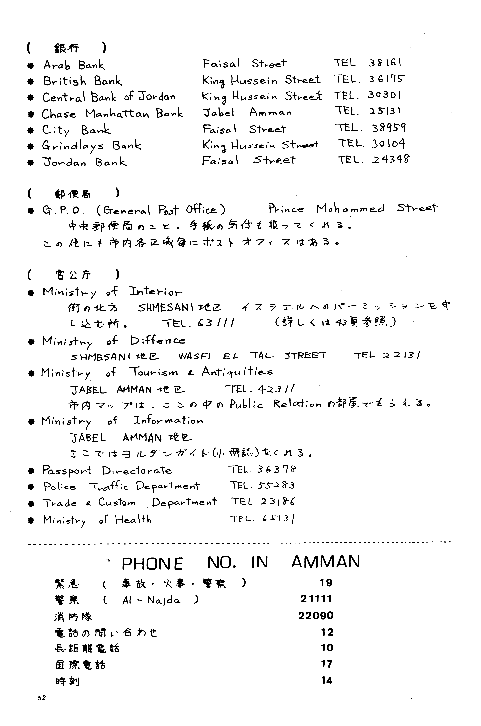 ( 銀行 )
● Arab Bank Faisal Street TEL 38161
● British Bank King Hussein Street TEL. 36175
● Central Bank of Jordan King Hussein Street TEL. 30301
● Chase Manhattan Bank Jabel Amman TEL. 25131
● City Bank Faisal Street TEL. 38959
● Grindlays Bank King Hussein Street TEL. 30104
● Jordan Bank Faisal Street TEL. 24348
( 郵便局 )
● G.P.O. (General Post Office) Prince Mohammed Street
中央郵便局のこと。手紙の気付も扱ってくれる。
この他にも市内各区域毎にポストオフィスはある。
( 官公庁 )
● Ministry of Interior
街の北方 SHMESANI地区 イスラエルへのパーミッションを申
し込む所。 TEL. 63111 (詳しくは 頁参照)
● Ministry of Diffence
SHMESANI地区 WASFI EL TAL STREET TEL 22131
● Ministry of Tourism & Antiquities
JABEL AMMAN 地区 TEL. 42311
市内マップは、ここの中のPublic Relationの部屋でもらえる。
● Ministry of Information
JABEL AMMAN 地区
ここではヨルダンガイド(小冊誌)をくれる。
● Passport Directorate TEL. 36378
● Police Traffic Department TEL. 55283
● Trade & Custom Department TEL 23186
● Ministry of Health TEL. 65131
PHONE NO. IN AMMAN
緊急 ( 事故・火事・警察 ) 19
警察 ( Al-Najda ) 21111
消防隊 22090
電話の問い合わせ 12
長距離電話 10
国際電話 17
時刻 14
62